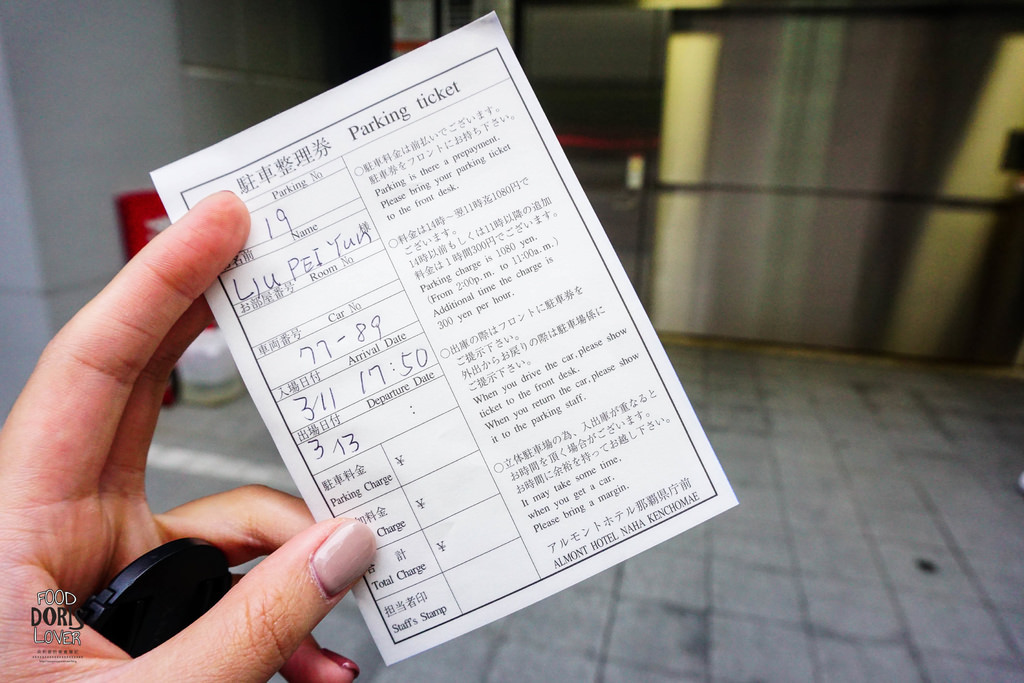 駐車整理券 Parking ticket
Parking No
19
名前 Name
LIU PEI YUN 様
お部屋番号 Room No
車両番号 Car No
77-89
入場日付 Arrival Date
3/11 17:50
出場日付 Departure Date
3/13 :
駐車料金
Parking Charge ¥
料金
Charge ¥
計
Total Charge ¥
担当者印
Staff's Stamp
○駐車料金は前払いでございます。
駐車券をフロントにお持ち下さい。
Parking is there a prepayment.
Please bring your parking ticket
to the front desk.
○料金は14時～翌11時迄1080円で
ございます。
14時以前もしくは11時以降の追加
料金は1時間300円でございます。
Parking charge is 1080 yen.
(From 2:00p.m. to 11:00a.m.)
Additional time the charge is
300 yen per hour.
○出庫の際はフロントに駐車券を
ご提示下さい。
外出からお戻りの際は駐車場係に
ご提示下さい。
When you drive the car,please show
ticket to the front desk.
When you return the car,please show
it to the parking staff.
○立体駐車場の為、入出庫が重なると
お時間を頂く場合がございます。
お時間に余裕を持ってお越し下さい。
It may take some time,
when you get a car.
Please bring a margin.
アルモントホテル那覇県庁前
ALMONT HOTEL NAHA KENCHOMAE
FOOD
DORIS
LOVER